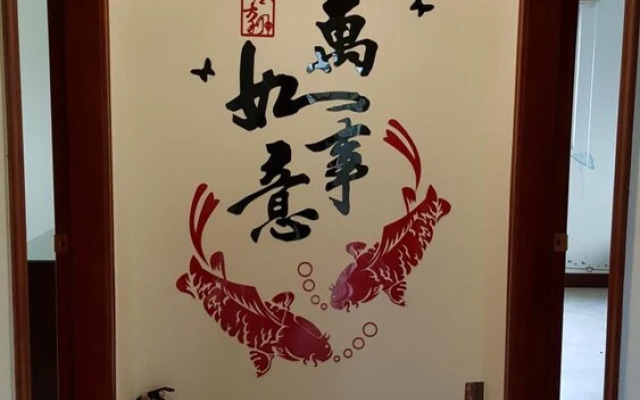 萬事
如意